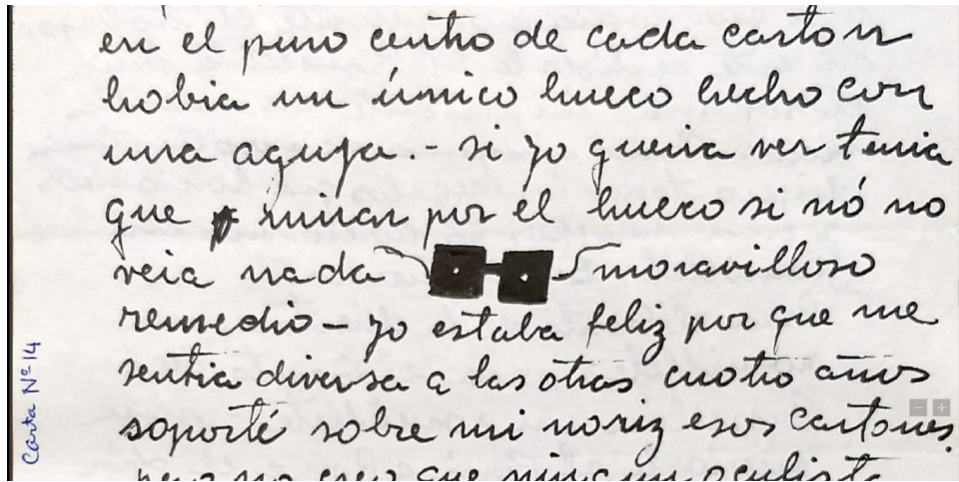 en el puro centro de cada carton
habia un único hueco hecho con
una aguja.- si yo queria ver tenia
que mirar por el hueco si nó no
veia nada maravilloso
remedio - yo estaba feliz por que me
sentia diversa a las otras cuatro años
soporté sobre mi nariz esos cartones
pero no creo que ningun oculista
Carta Nº 14